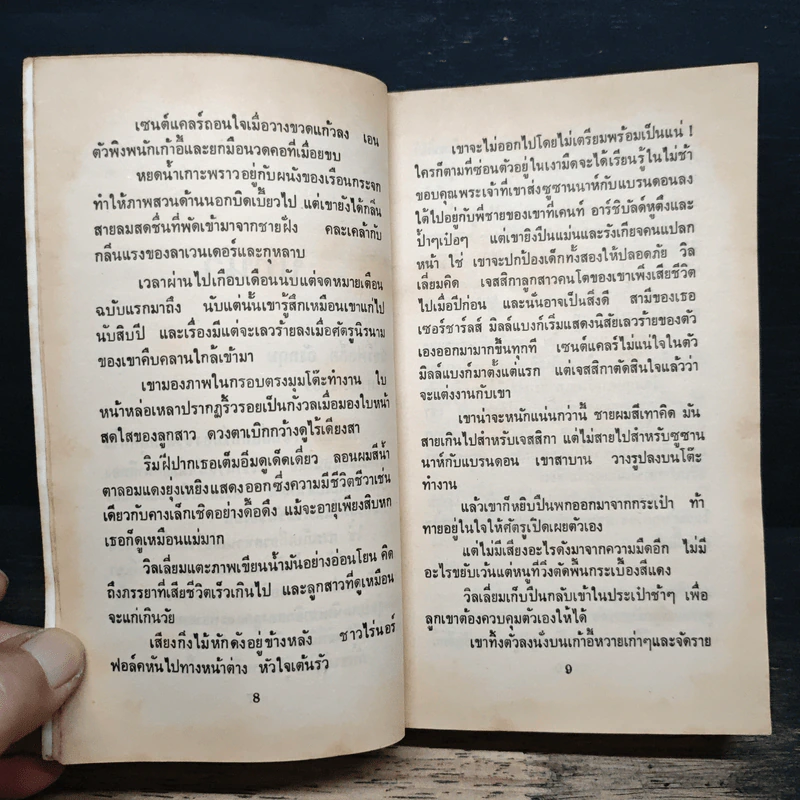 เซนต์แคลร์ถอนใจเมื่อวางขวดแก้วลง เอน
ตัวพิงพนักเก้าอี้และยกมือนวดคอที่เมื่อยขบ
หยดน้ำเกาะพราวอยู่กับผนังของเรือนกระจก
ทำให้ภาพสวนด้านนอกบิดเบี้ยวไป แต่เขายังได้กลิ่น
สายลมสดชื่นที่พัดเข้ามาจากชายฝั่ง คละเคล้ากับ
กลิ่นแรงของลาเวนเดอร์และกุหลาบ
เวลาผ่านไปเกือบเดือนนับแต่จดหมายเตือน
ฉบับแรกมาถึง นับแต่นั้นเขารู้สึกเหมือนเขาแก่ไป
นับสิบปี และเรื่องมีแต่จะเลวร้ายลงเมื่อศัตรูนิรนาม
ของเขาคืบคลานใกล้เข้ามา
เขามองภาพในกรอบตรงมุมโต๊ะทำงาน ใบ
หน้าหล่อเหลาปรากฏริ้วรอยเป็นกังวลเมื่อมองใบหน้า
สดใสของลูกสาว ดวงตาเบิกกว้างดูไร้เดียงสา
ริมฝีปากเธอเต็มอิ่มดูเด็ดเดี่ยว ลอนผมสีน้ำ
ตาลอมแดงยุ่งเหยิงแสดงออกซึ่งความมีชีวิตชีวาเช่น
เดียวกับคางเล็กเชิดอย่างดื้อดึง แม้จะอายุเพียงสิบหก
เธอก็ดูเหมือนแม่มาก
วิลเลี่ยมแตะภาพเขียนน้ำมันอย่างอ่อนโยน คิด
ถึงภรรยาที่เสียชีวิตเร็วเกินไป และลูกสาวที่ดูเหมือน
จะแก่เกินวัย
เสียงกิ่งไม้หักดังอยู่ข้างหลัง ชาวไร่นอร์
ฟอล์คหันไปทางหน้าต่าง หัวใจเต้นรัว
8
เขาจะไม่ออกไปโดยไม่เตรียมพร้อมเป็นแน่ !
ใครก็ตามที่ซ่อนตัวอยู่ในเงามืดจะได้เรียนรู้ในไม่ช้า
ขอบคุณพระเจ้าที่เขาส่งซูซานนาห์กับแบรนดอนลง
ใต้ไปอยู่กับพี่ชายของเขาที่เคนท์ อาร์ชิบัลด์หูตึงและ
ป้ำๆเป๋อๆ แต่เขายิงปืนแม่นและรังเกียจคนแปลก
หน้า ใช่ เขาจะปกป้องเด็กทั้งสองให้ปลอดภัย วิล
เลี่ยมคิด เจสสิกาลูกสาวคนโตของเขาเพิ่งเสียชีวิต
ไปเมื่อปีก่อน และนั่นอาจเป็นสิ่งดี สามีของเธอ
เซอร์ชาร์ลส์ มิลล์แบงก์เริ่มแสดงนิสัยเลวร้ายของตัว
เองออกมามากขึ้นทุกที เซนต์แคลร์ไม่แน่ใจในตัว
มิลล์แบงก์มาตั้งแต่แรก แต่เจสสิกาตัดสินใจแล้วว่า
จะแต่งงานกับเขา
เขาน่าจะหนักแน่นกว่านี้ ชายผมสีเทาคิด มัน
สายเกินไปสำหรับเจสสิกา แต่ไม่สายไปสำหรับซูซาน
นาห์กับแบรนดอน เขาสาบาน วางรูปลงบนโต๊ะ
ทำงาน
แล้วเขาก็หยิบปืนพกออกมาจากกระเป๋า ท้า
ทายอยู่ในใจให้ศัตรูเปิดเผยตัวเอง
แต่ไม่มีเสียงอะไรดังมาจากความมืดอีก ไม่มี
อะไรขยับเว้นแต่หนูที่วิ่งตัดพื้นกระเบื้องสีแดง
วิลเลี่ยมเก็บปืนกลับเข้าในกระเป๋าช้าๆ เพื่อ
ลูกเขาต้องควบคุมตัวเองให้ได้
เขาทิ้งตัวลงนั่งบนเก้าอี้หวายเก่าๆและจัดราย
9